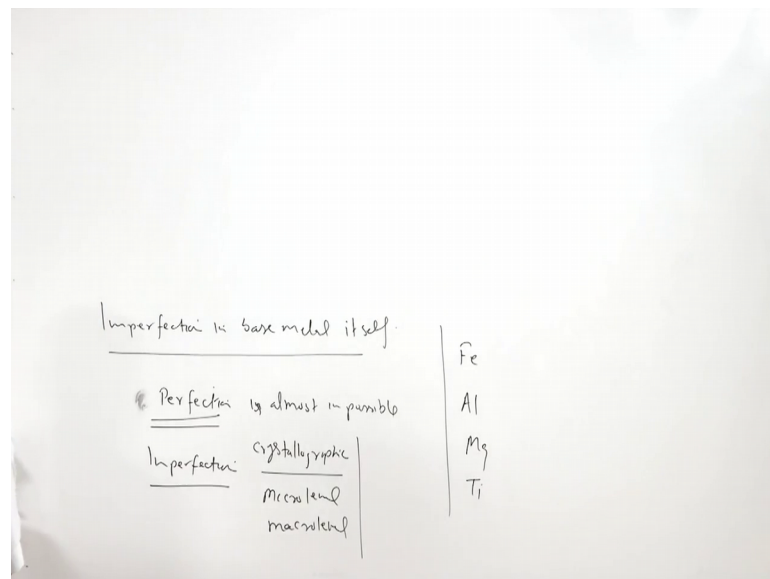 Imperfection in base metal itself.
Perfection is almost impossible
Imperfection crystallographic
microlevel
macrolevel
Fe
Al
Mg
Ti